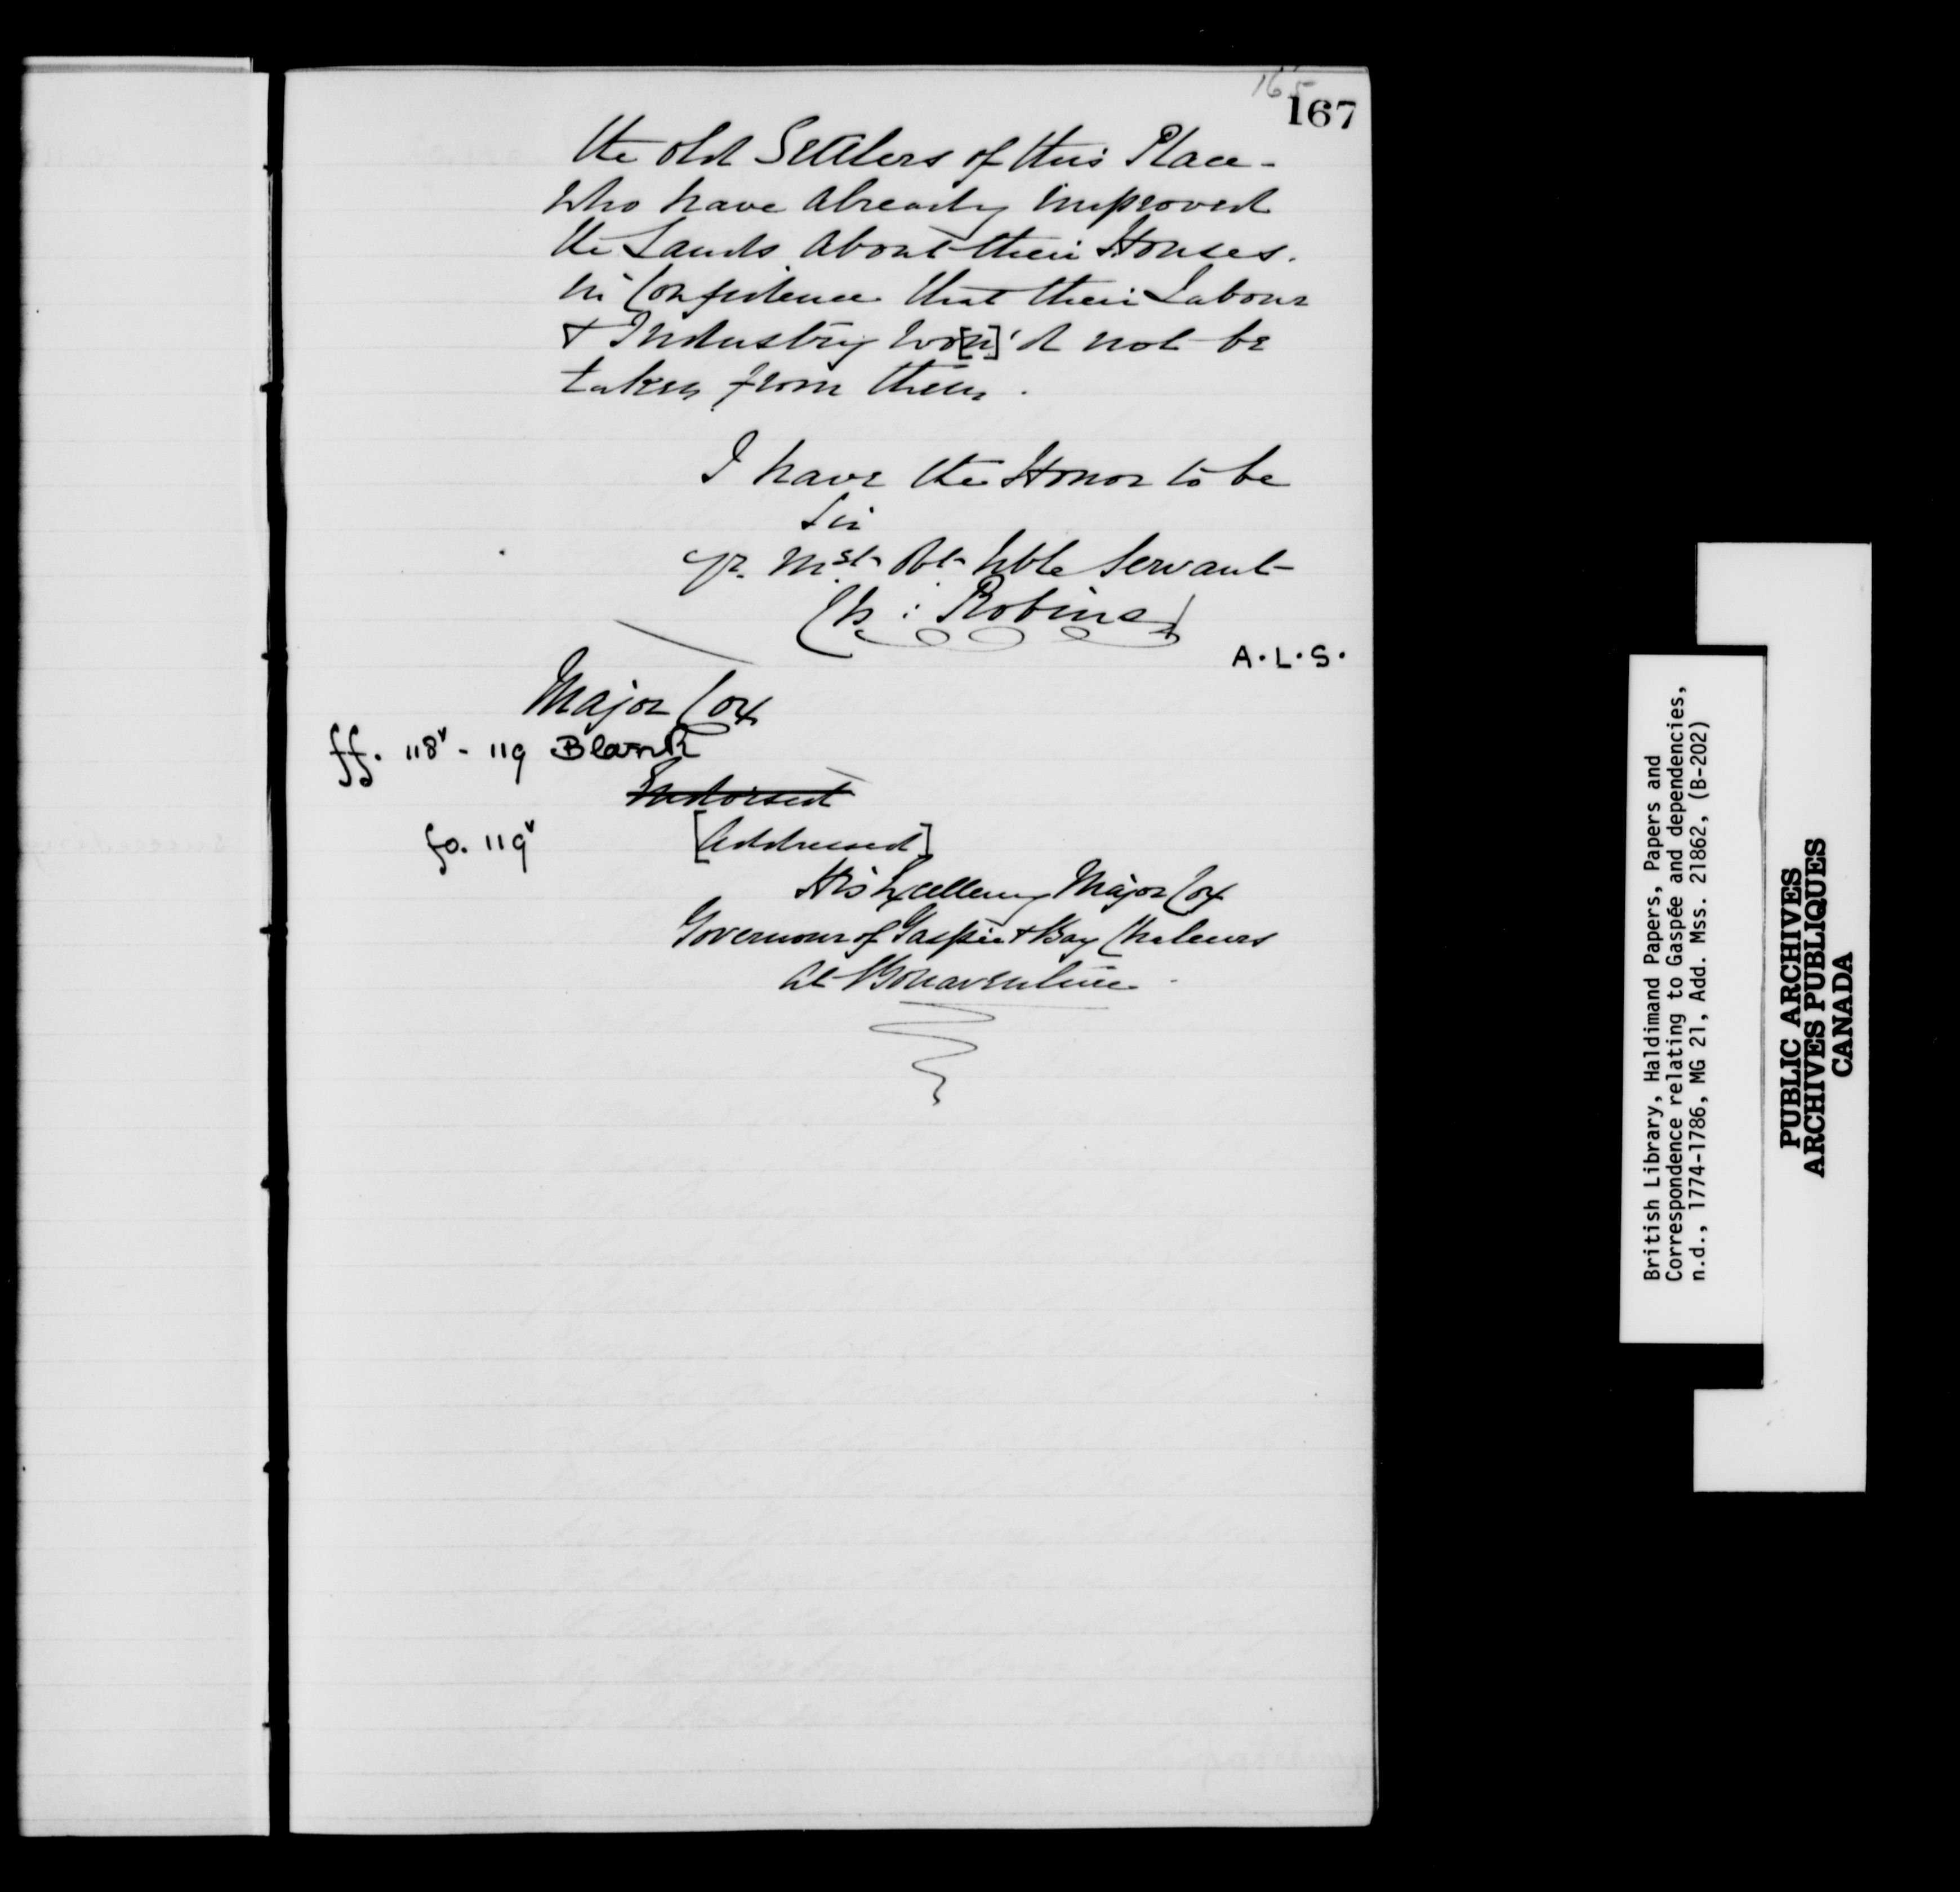 165
167
the old Settlers of this Place -
who have already improved
the Lands about their Houses.
in Confidence that their Labour
& Industry wo[u]'d not be
taken from them.
I have the Honor to be
Sir
yr. Mst. Obt. hble Servant
Ch: Robin
A.L.S.
Major Cox
ff. 118v - 119 Blank
Endorsed
fo. 119v [Addressed]
His Excellency Major Cox
Governour of Gaspée & Bay Chaleurs
at Bonaventure.
British Library, Haldimand Papers, Papers and
Correspondence relating to Gaspée and dependencies,
n.d., 1774-1786, MG 21, Add. Mss. 21862, (B-202)
PUBLIC ARCHIVES
ARCHIVES PUBLIQUES
CANADA